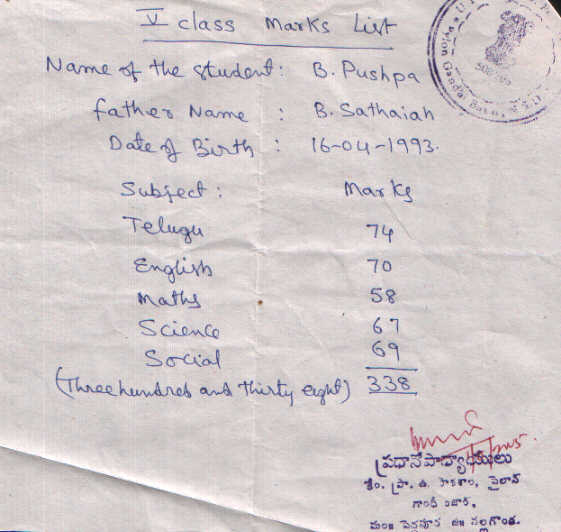 V class Marks List
Name of the student: B. Pushpa
father Name : B. Sathaiah
Date of Birth : 16-04-1993.
Subject: Marks
Telugu 74
English 70
Maths 58
Science 67
Social 69
(Three hundred and thirty eight) 338
ప్రధానోపాధ్యాయులు
గాంధీ బజార్,
నల్లగొండ.